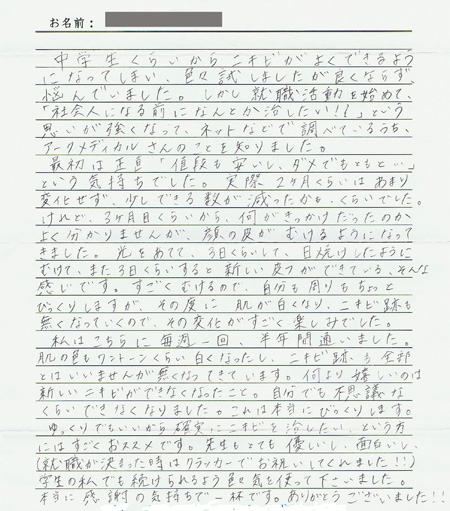 お名前：
中学生くらいからニキビがよくできるよう
になってしまい、色々試しましたが良くならず、
悩んでいました。しかし就職活動を始めて、
「社会人になる前になんとか治したい！！」という
思いが強くなって、ネットなどで調べているうち、
アークメディカルさんのことを知りました。
最初は正直「値段も安いし、ダメでもともと…」
という気持ちでした。実際2ヶ月くらいはあまり
変化せず、少しできる数が減ったかも、くらいでした。
けれど、3ヶ月目くらいから、何がきっかけだったのか
よく分かりませんが、顔の皮がむけるようになって
きました。光をあてて、3日くらいして、日焼けしたように
むけて、また3日くらいすると新しい皮フができている、そんな
感じです。すごくむけるので、自分も周りもちょっと
びっくりしますが、その度に肌が白くなり、ニキビ跡も
無くなっていくので、その変化がすごく楽しみでした。
私はこちらに毎週一回、半年間通いました。
肌の色もワントーンくらい白くなったし、ニキビ跡も全部
とはいいませんが無くなってきています。何より嬉しいのは
新しいニキビができなくなったこと。自分でも不思議な
くらいできなくなりました。これは本当にびっくりします。
ゆっくりでもいいから確実にニキビを治したい、という方
にはすごくおススメです。先生もとても優しいし、面白いし、
(就職が決まった時はクラッカーでお祝いしてくれました！！)
学生の私でも続けられるよう色々気を使って下さいました。
本当に感謝の気持ちで一杯です。ありがとうございました！！